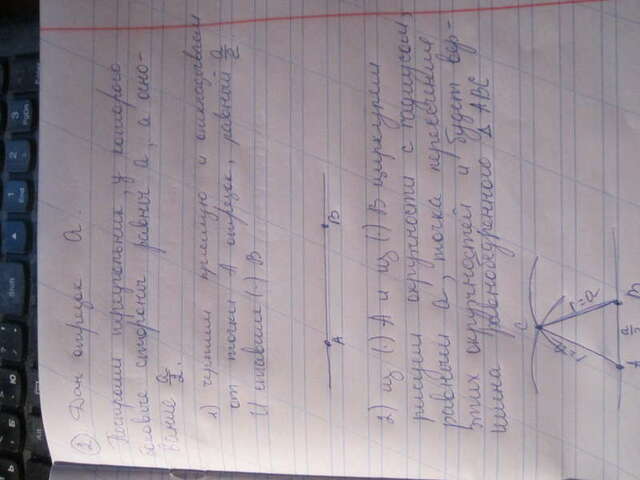 Shift
1
End
2
3
PgDn
② Дан отрезок а.
Построим треугольник, у которого
боковые стороны равны а, а осно-
вание a/2.
1) чертим прямую и откладываем
от точки А отрезок, равный a/2
И ставим (·) В
А В
2) из (·) А и из (·) В циркулем
рисуем окружности с радиусом,
равным а, точка пересечения
этих окружностей и будет вер-
шина равнобедренного Δ АВС
С
r=a r=a
А a/2 В